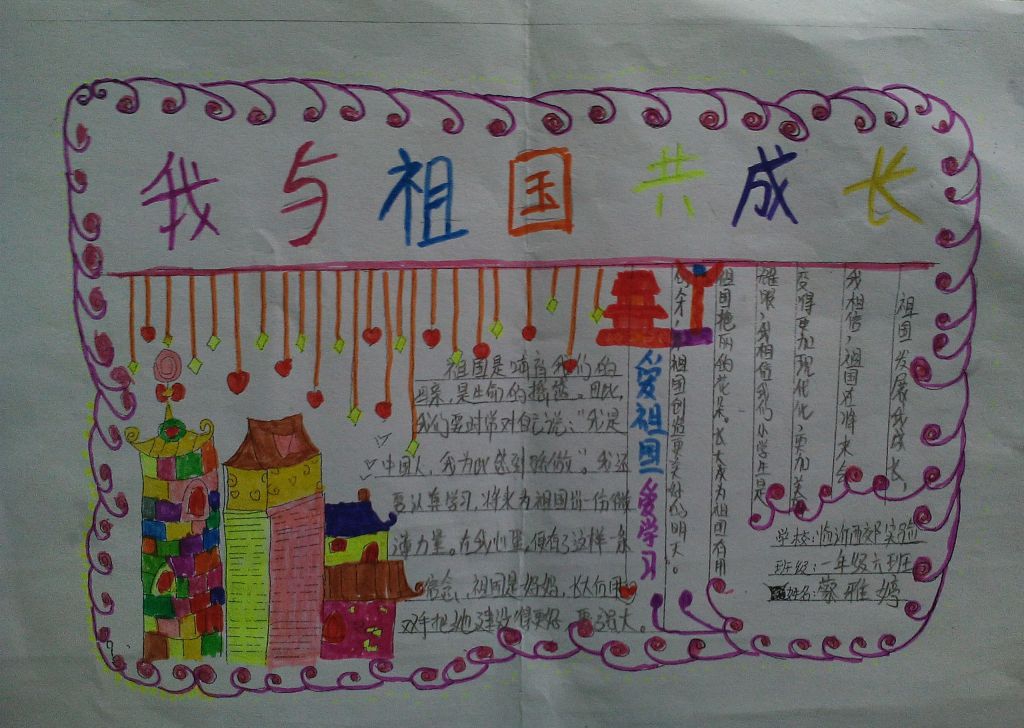 我与祖国共成长
祖国发展我成长，
我相信，祖国还将来会
变得更加现代化，更加美
耀眼，我相信我们小学生是
祖国艳丽的花朵。长大成为祖国有用
的人才，祖国创造更美好的明天。
爱祖国 爱学习
祖国是哺育我们的
母亲，是生命的摇篮。因此，
我们要时常对自己说：“我是
中国人，我为此感到骄傲”。我还
要认真学习，将来为祖国出一份微
薄力量。在我心里，便有了这样一条
信念，祖国是妈妈，长大有用
双手把她建设得更好 更强大。
学校：临沂西郊实验
班级：一年级六班
姓名：蔡雅婷